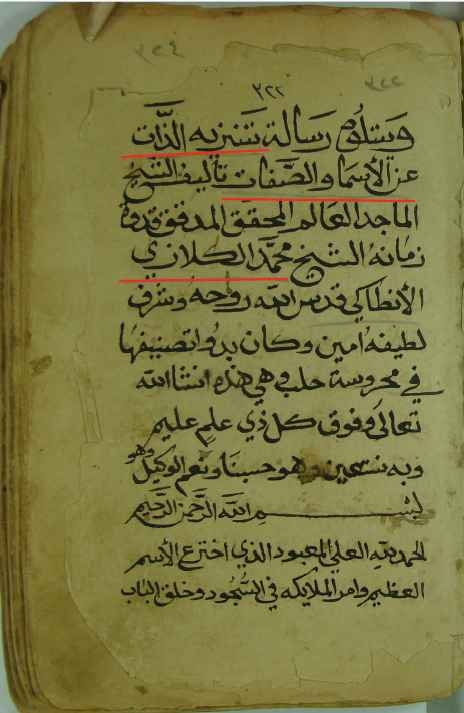 ٣٢٤
٣٢٢ ٣٢٢
ويتلوه رسالة تنزيه الذات
عن الأسما والصفات تأليف الشيخ
الماجد العالم المحقق المدقق قدوة
زمانه الشيخ محمد الكلازي
الأنطاكي قدس الله روحه وشرف
لطيفه امين وكان بدؤ تصنيفها
في محروسة حلب وهي هذه انشا الله
تعالى وفوق كل ذي علم عليم
وبه نستعين وهو حسبنا ونعم الوكيل
بسم الله الرحمن الرحيم
الحمد لله العلي المعبود الذي اخترع الأسم
العظيم وامر الملايكه في السجود وخلق الباب